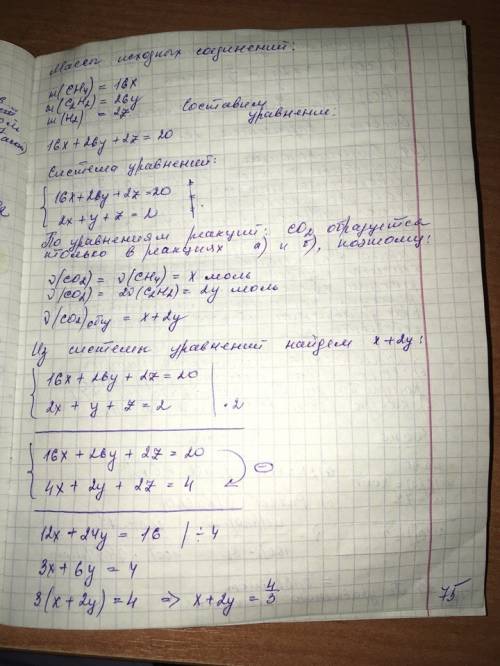 Массы исходных соединений:
m(CH₄) = 16x
m(C₂H₂) = 26y
m(H₂) = 2z
Составим уравнение:
16x + 26y + 2z = 20
Система уравнений:
16x + 26y + 2z = 20
2x + y + z = 2
По уравнениям реакций: CO₂ образуется
только в реакциях а) и б), поэтому:
ν(CO₂) = ν(CH₄) = x моль
ν(CO₂) = 2ν(C₂H₂) = 2y моль
ν(CO₂)общ = x + 2y
Из системы уравнений найдём x + 2y:
16x + 26y + 2z = 20
2x + y + z = 2 | · 2
16x + 26y + 2z = 20
4x + 2y + 2z = 4
⊖
12x + 24y = 16 | ÷ 4
3x + 6y = 4
3(x + 2y) = 4 ⇒ x + 2y = 4/3
75